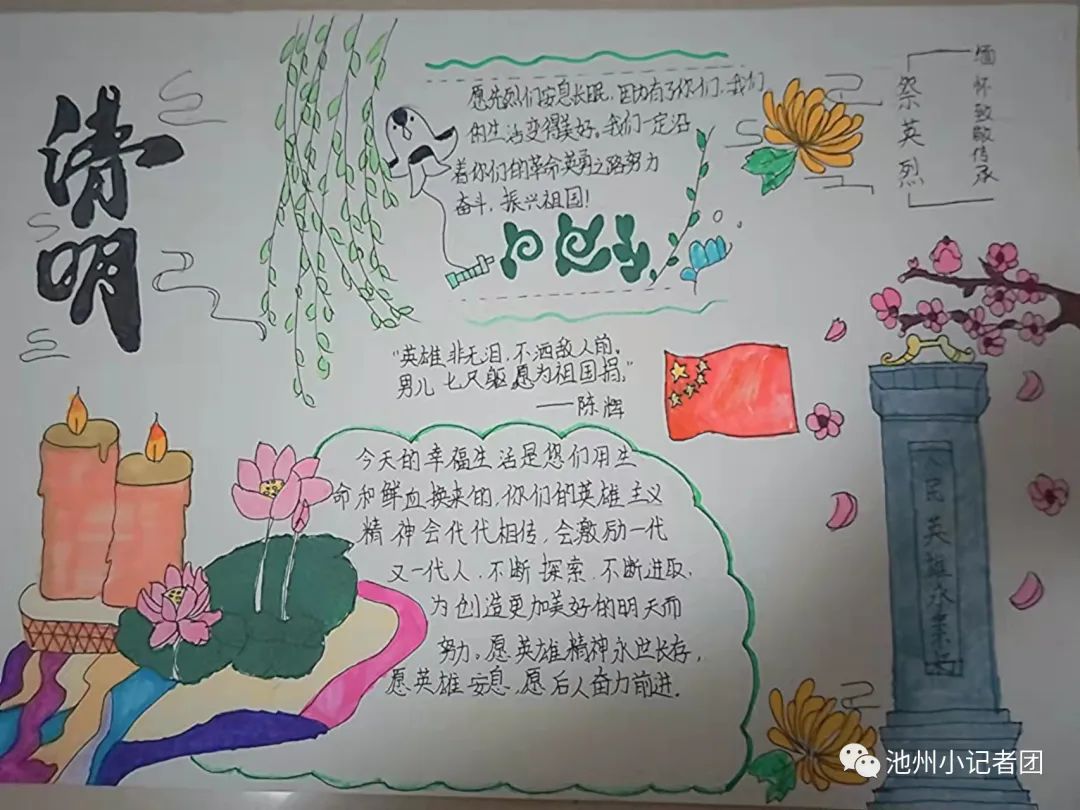 清明
愿先烈们安息长眠,因为有了你们,我们
的生活变得美好。我们一定沿
着你们的革命英勇之路努力
奋斗,振兴祖国!
缅怀致敬传承
祭英烈
"英雄非无泪,不洒敌人前。
男儿七尺躯,愿为祖国捐。"
——陈辉
今天的幸福生活是您们用生
命和鲜血换来的,你们的英雄主义
精神会代代相传,会激励一代
又一代人,不断探索,不断进取,
为创造更加美好的明天而
努力。愿英雄精神永世长存,
愿英雄安息,愿后人奋力前进.
人民英雄永垂
池州小记者团